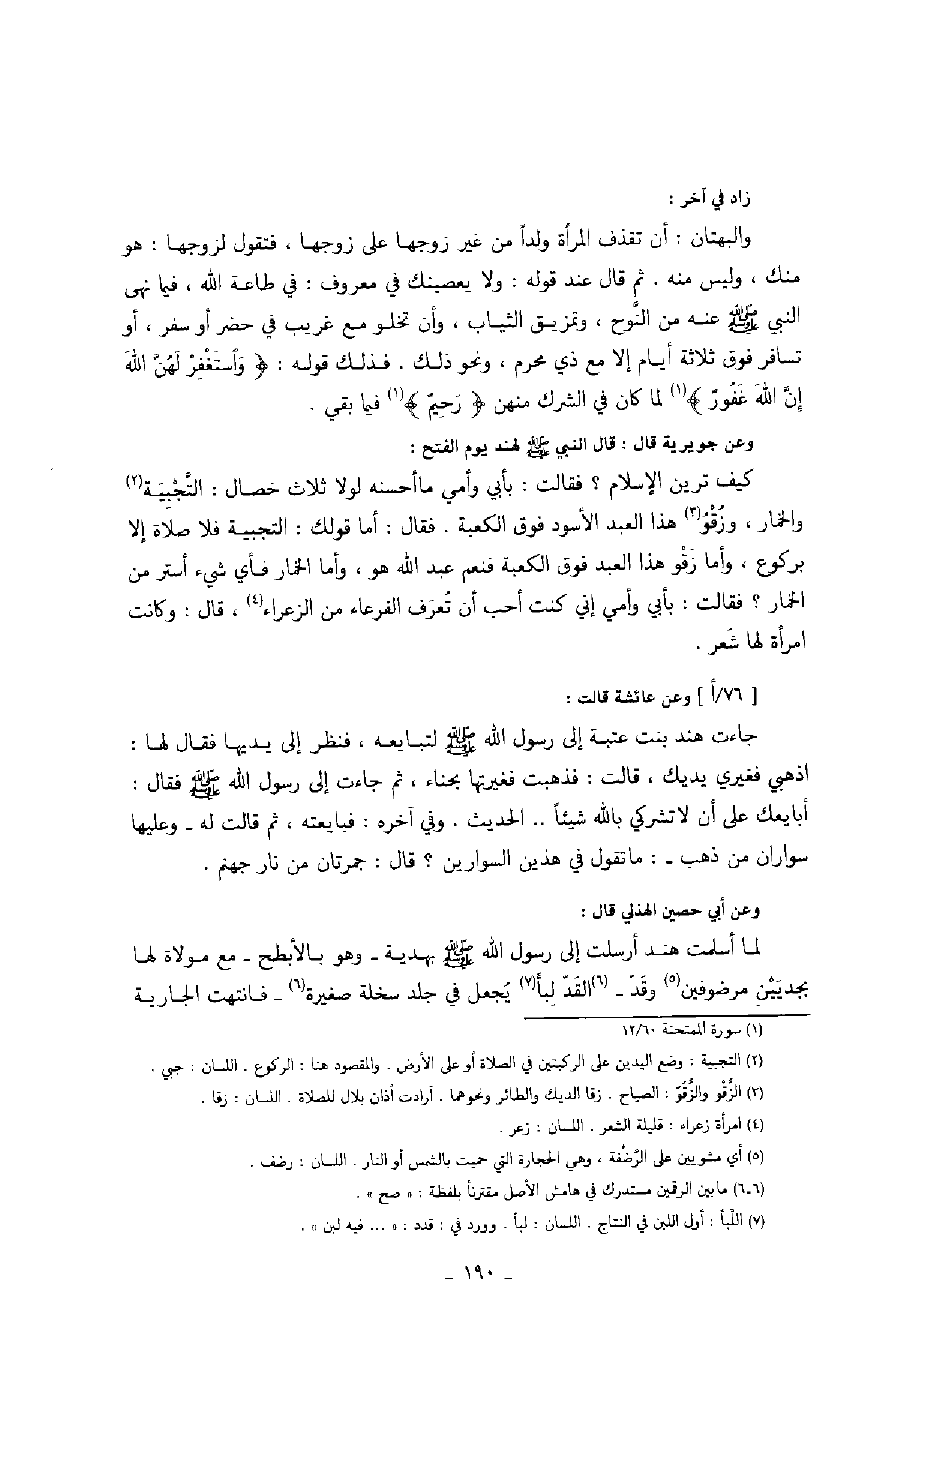 زاد في آخر :
والبهتان : أن تقذف المرأة ولداً من غير زوجها على زوجها ، فتقول لزوجها : هو
منك ، وليس منه . ثم قال عند قوله : ولا يعصينك في معروف : في طاعة الله ، فيما نهى
النبي ﷺ عنه من النَّوح ، وتمزيق الثياب ، وأن تخلو مع غريب في حضر أو سفر ، أو
تسافر فوق ثلاثة أيام إلا مع ذي محرم ، ونحو ذلك . فذلك قوله : ﴿ وَٱستَغْفِرْ لَهُنَّ اللهَ
إنَّ اللهَ غَفُورٌ ﴾(١) لما كان في الشرك منهن ﴿ رَحِيمٌ ﴾(١) فيما بقي .
وعن جويرية قال : قال النبي ﷺ لهند يوم الفتح :
كيف ترين الإسلام ؟ فقالت : بأبي وأمي ماأحسنه لولا ثلاث خصال : التَّجْبِيَة(٢)
والخمار ، وزُقُوُّ(٣) هذا العبد الأسود فوق الكعبة . فقال : أما قولك : التجبية فلا صلاة إلا
بركوع ، وأما زَقْو هذا العبد فوق الكعبة فنعم عبد الله هو ، وأما الخمار فأي شيء أستر من
الخمار ؟ فقالت : بأبي وأمي إني كنت أحب أن تُعرَف الفرعاء من الزعراء(٤) ، قال : وكانت
امرأة لها شَعر .
[ ٧٦/أ ] وعن عائشة قالت :
جاءت هند بنت عتبة إلى رسول الله ﷺ لتبايعه ، فنظر إلى يديها فقال لها :
اذهبي فغيري يديك ، قالت : فذهبت فغيرتها بحناء ، ثم جاءت إلى رسول الله ﷺ فقال :
أبايعك على أن لاتشركي بالله شيئاً .. الحديث . وفي آخره : فبايعته ، ثم قالت له ـ وعليها
سواران من ذهب ـ : ماتقول في هذين السوارين ؟ قال : جمرتان من نار جهنم .
وعن أبي حصين الهذلي قال :
لما أسلمت هند أرسلت إلى رسول الله ﷺ بهدية ـ وهو بالأبطح ـ مع مولاة لها
بجديَيْنِ مرضوفين(٥) وقَدّ ـ (٦)القَدّ لبأ(٧) يُجعل في جلد سخلة صغيرة(٦) ـ فانتهت الجارية
(١) سورة الممتحنة ١٢/٦٠
(٢) التجبية : وضع اليدين على الركبتين في الصلاة أو على الأرض . والمقصود هنا : الركوع . اللسان : جبي .
(٣) الزَّقْو والزُّقُوّ : الصياح . زقا الديك والطائر ونحوهما . أرادت أذان بلال للصلاة . اللسان : زقا .
(٤) امرأة زعراء : قليلة الشعر . اللسان : زعر .
(٥) أي مشويين على الرَّضْفة ، وهي الحجارة التي حميت بالشمس أو النار . اللسان : رضف .
(٦ـ٦) مابين الرقمين مستدرك في هامش الأصل مقترناً بلفظة : « صح » .
(٧) اللّبأ : أول اللبن في النتاج . اللسان : لبأ . وورد في : قدد : « ... فيه لبن » .
ـ ١٩٠ ـ